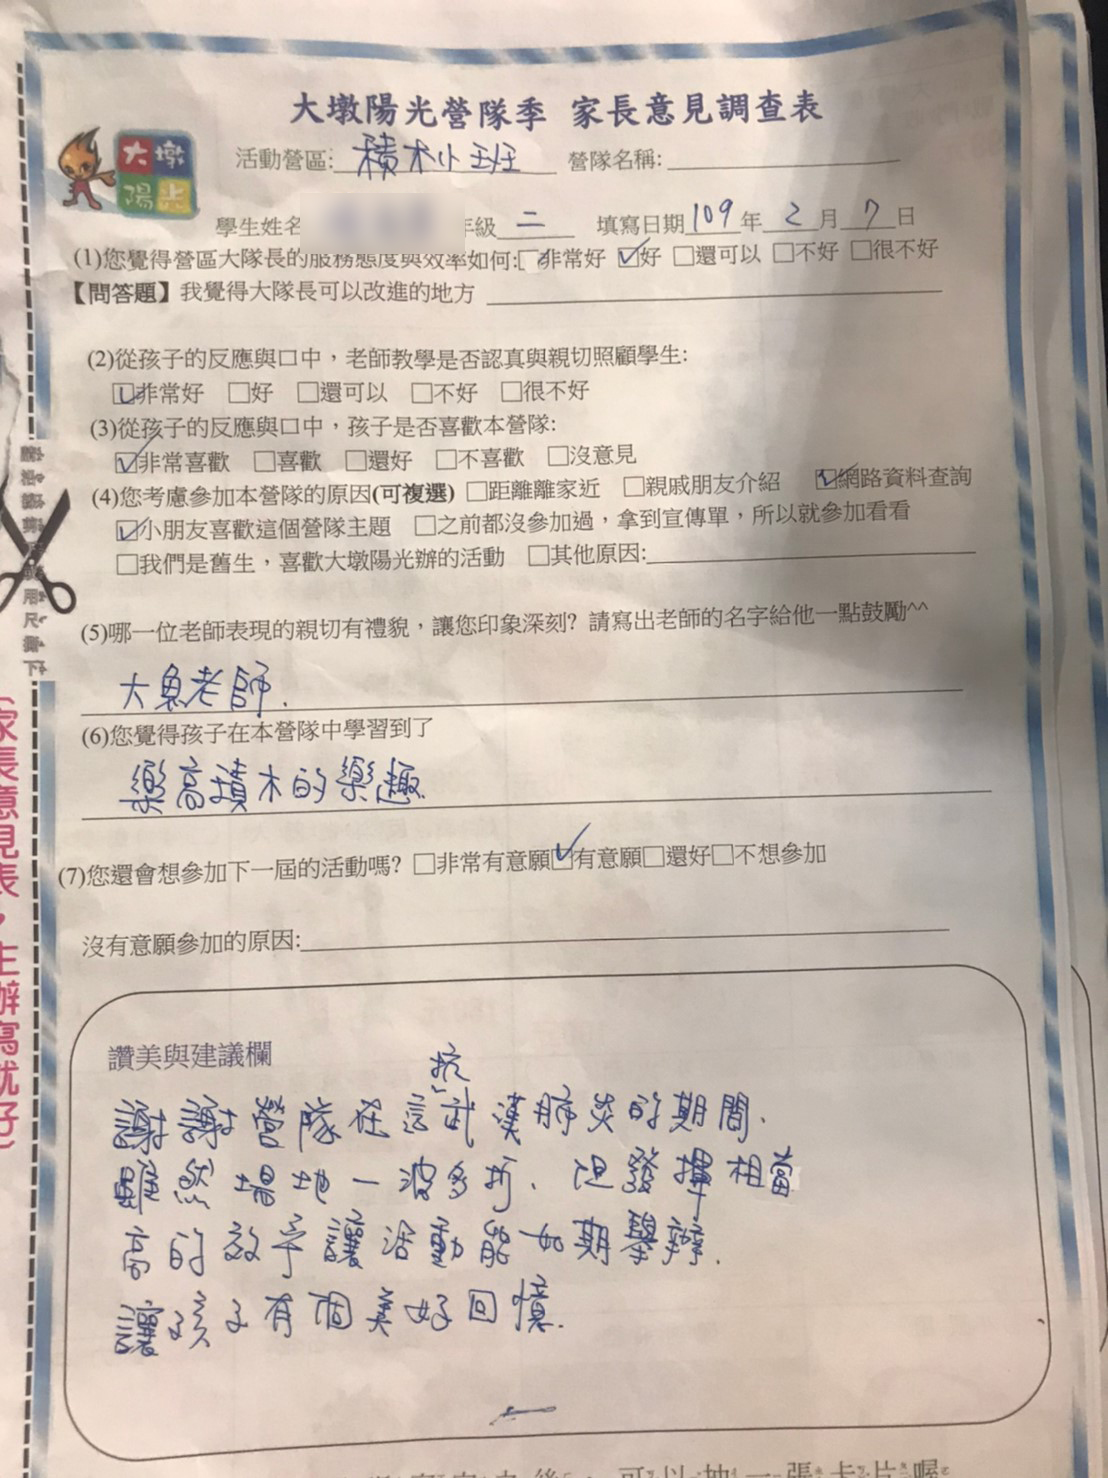 大墩陽光營隊季 家長意見調查表
大墩
陽光
活動營區: 積木小班 營隊名稱:
學生姓名 年級 二 填寫日期 109 年 2 月 7 日
(1)您覺得營區大隊長的服務態度與效率如何:□非常好 ☑好 □還可以 □不好 □很不好
【問答題】我覺得大隊長可以改進的地方
(2)從孩子的反應與口中,老師教學是否認真與親切照顧學生:
☑非常好 □好 □還可以 □不好 □很不好
(3)從孩子的反應與口中,孩子是否喜歡本營隊:
☑非常喜歡 □喜歡 □還好 □不喜歡 □沒意見
(4)您考慮參加本營隊的原因(可複選) □距離離家近 □親戚朋友介紹 ☑網路資料查詢
☑小朋友喜歡這個營隊主題 □之前都沒參加過,拿到宣傳單,所以就參加看看
□我們是舊生,喜歡大墩陽光辦的活動 □其他原因:
(5)哪一位老師表現的親切有禮貌,讓您印象深刻? 請寫出老師的名字給他一點鼓勵^^
大魚老師.
(6)您覺得孩子在本營隊中學習到了
樂高積木的樂趣.
(7)您還會想參加下一屆的活動嗎? □非常有意願☑有意願□還好□不想參加
沒有意願參加的原因:
讚美與建議欄
抗
謝謝營隊在這武漢肺炎的期間.
雖然場地一波多折. 但發揮相當
高的效率讓活動能如期舉辦.
讓孩子有個美好回憶.
家長意見表,主辦寫就好)
可以抽一張卡片喔